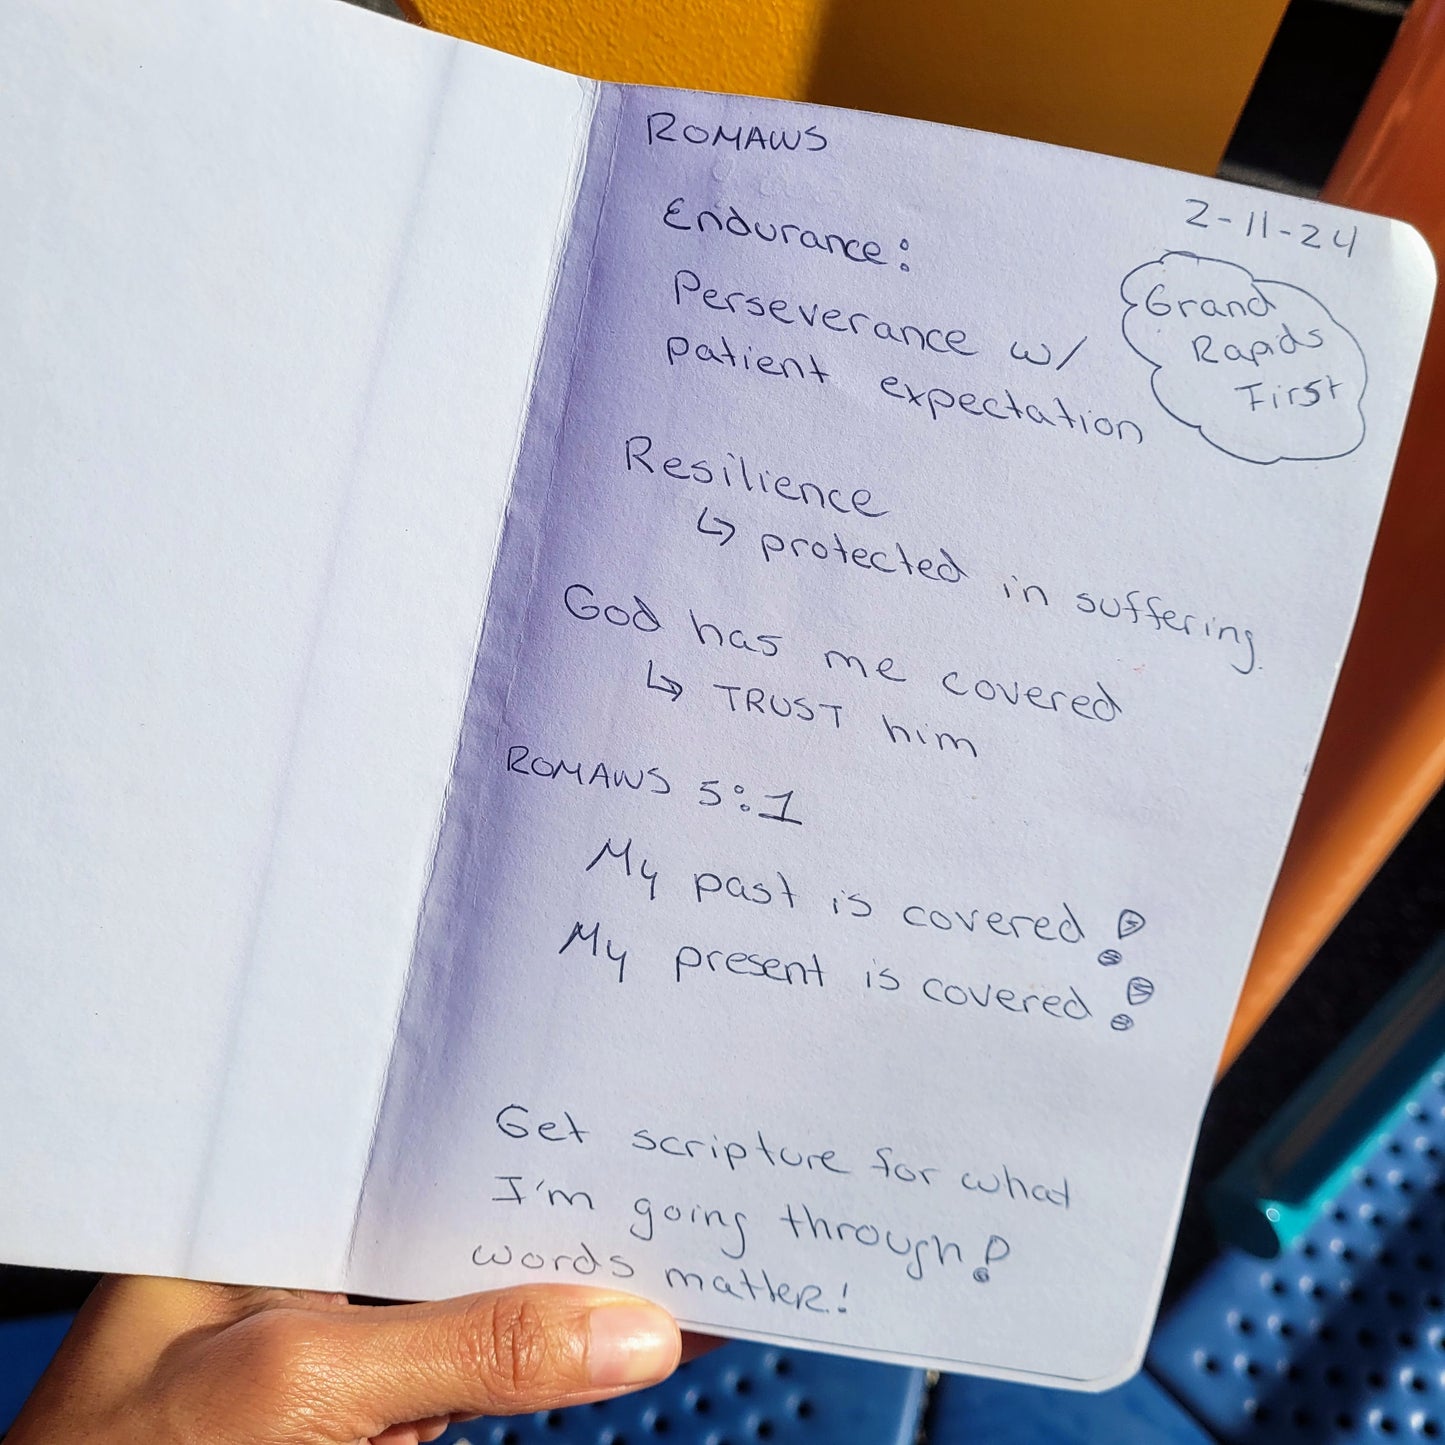 ROMANS
2-11-24
Endurance:
Grand
Rapids
First
Perseverance w/
patient expectation
Resilience
↳ protected in suffering.
God has me covered
↳ TRUST him
ROMANS 5:1
My past is covered!
My present is covered!
Get scripture for what
I'm going through!
words matter!